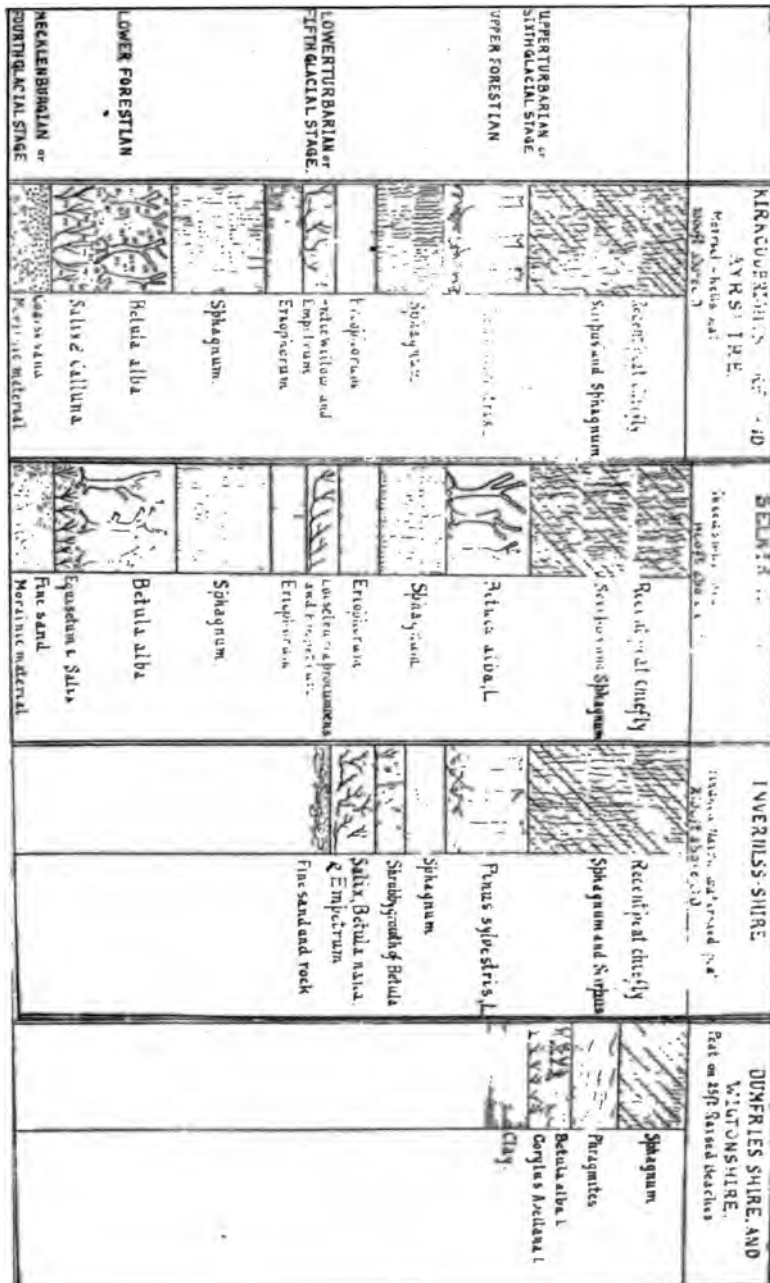 UPPER TURBARIAN or
SIXTH GLACIAL STAGE
UPPER FORESTIAN
LOWER TURBARIAN or
FIFTH GLACIAL STAGE.
LOWER FORESTIAN
MECKLENBURGIAN or
FOURTH GLACIAL STAGE
AYRSHIRE
Recent peat chiefly
Scirpus and Sphagnum
Sphagnum
Eriophorum
Empetrum
Eriophorum
Sphagnum
Betula alba
Salix & Calluna
Coarse sand
Morainic material
Recent peat chiefly
Scirpus and Sphagnum
Betula alba, L
Sphagnum
Eriophorum
Loiseleuria procumbens
and Empetrum
Eriophorum
Sphagnum
Betula alba
Equisetum & Salix
Fine sand
Morainic material
INVERNESS-SHIRE
Recent peat chiefly
Sphagnum and Scirpus
Pinus sylvestris, L
Sphagnum
Shrubby growth of Betula
Salix, Betula nana,
& Empetrum
Fine sand and rock
DUMFRIES SHIRE, AND
WIGTONSHIRE.
Peat on 25ft Raised Beaches
Sphagnum
Phragmites
Betula alba L
Corylus Avellana L
Clay.